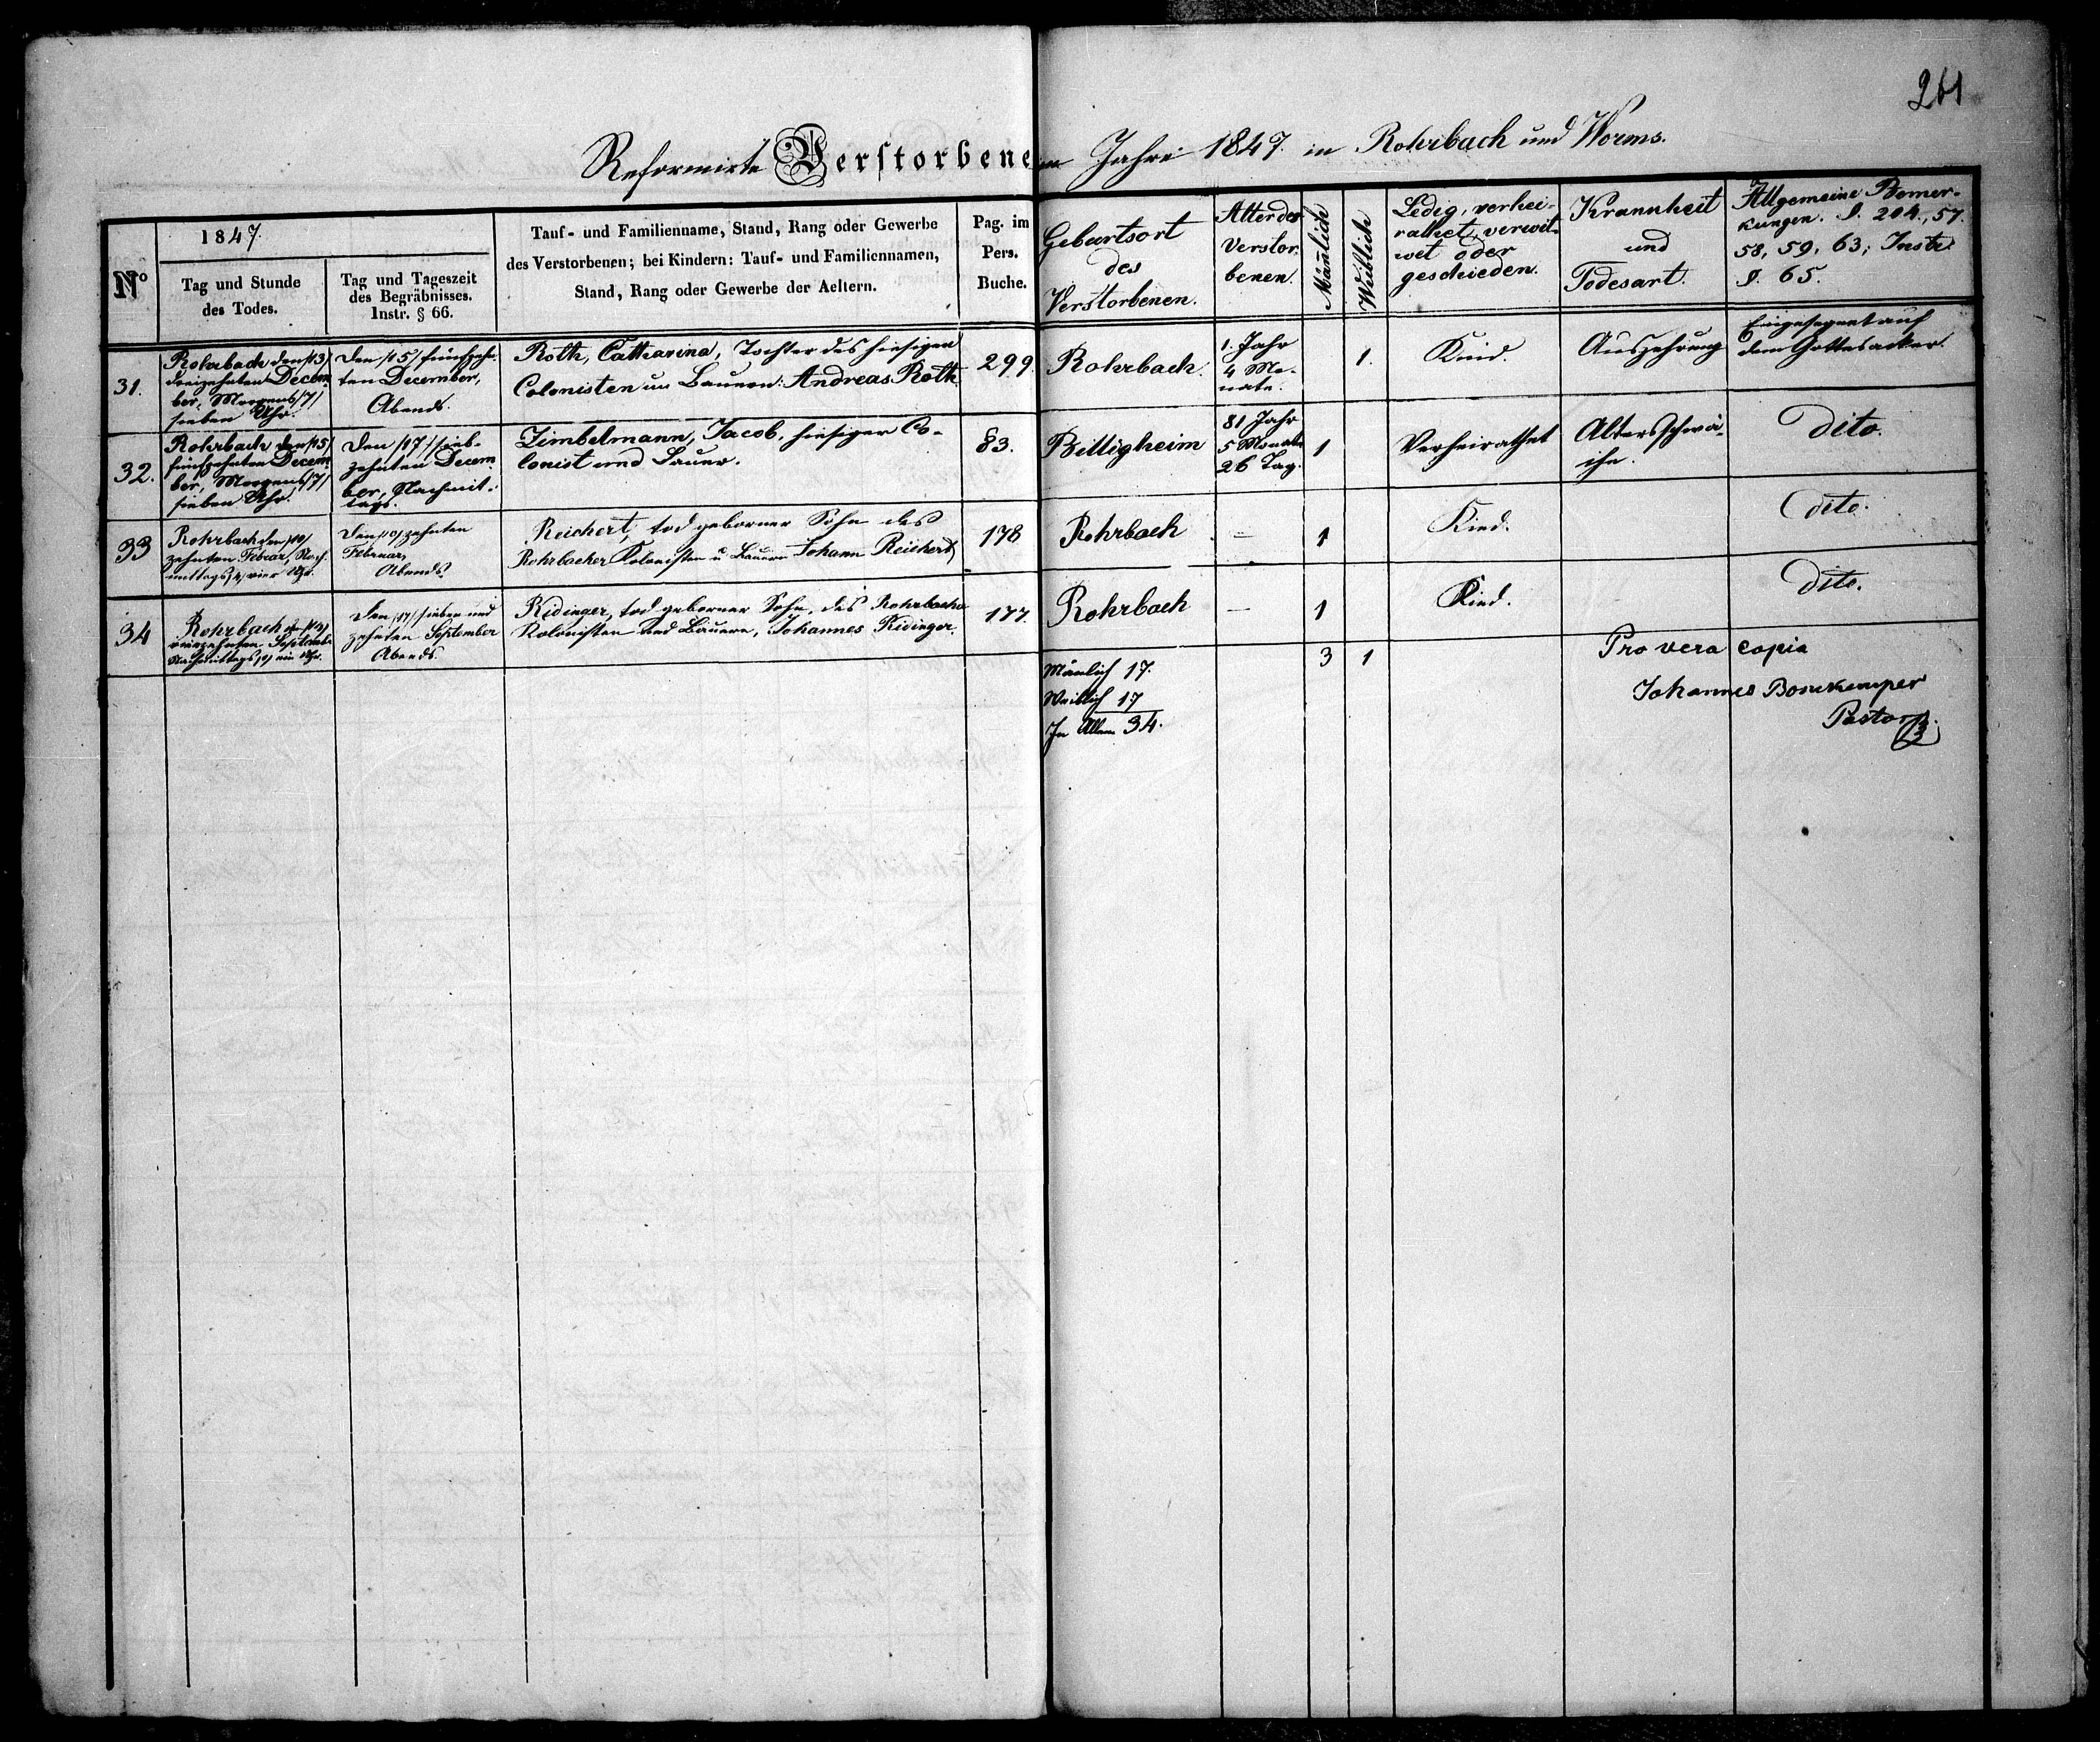 261
Reformirte Verstorbene im Jahre 1847. in Rohrbach und Worms.
No
1847.
Tag und Stunde
des Todes.
Tag und Tageszeit
des Begräbnisses.
Instr. § 66.
Tauf- und Familienname, Stand, Rang oder Gewerbe
des Verstorbenen; bei Kindern: Tauf- und Familiennamen,
Stand, Rang oder Gewerbe der Aeltern.
Pag. im
Pers.
Buche.
Geburtsort
des
Verstorbenen.
Alter des
Verstor-
benen.
Mänlich
Weiblich
Ledig, verhei-
rathet, verwit-
wet oder
geschieden.
Krannheit
und
Todesart.
Allgemeine Bemer-
kungen. §. 204., 57.
58, 59, 63; Instr.
§. 65.
31.
Rohrbach den /13/
dreizehnten Decem-
ber, Morgens /7/
sieben Uhr.
Den /15/ fünfzehn-
ten December,
Abends.
Roth, Catharina, Tochter des hiesigen
Colonisten un Bauern: Andreas Roth.
299.
Rohrbach.
1. Jahr
4 Mo-
nate.
1.
Kind.
Auszehrung
Eingesegnet auf
dem Gottesacker.
32.
Rohrbach den /15/
fünfzehnten Decem-
ber, Morgens /7/
sieben Uhr.
Den /17/ sieb-
zehnten Decem-
ber, Nachmit-
tags.
Zimbelmann, Jacob, hiesiger Co-
lonist und Bauer.
83.
Billigheim
81 Jahr
5 Monate
26 Tag.
1
Verheirathet
Altersschwä-
che.
dito.
33
Rohrbach den /10/
zehnten Februar, Nach-
mittags /4/ vier Uhr.
Den /10/ zehnten
Februar,
Abends.
Reichert, tod geborner Sohn des
Rohrbacher Kolonisten u. Bauern Johann Reichert
178
Rohrbach
–
1
Kind.
dito.
34
Rohrbach den /14/
vierzehnten September
Nachmittags /1/ ein Uhr.
Den /17/ sieben und
zehnten September
Abends.
Ridinger, tod geborner Sohn, des Rohrbacher
Kolonisten und Bauern, Johannes Ridinger.
177.
Rohrbach
–
1
Kind.
dito.
Mänlich 17.
Weiblich 17
In Allem 34.
3
1
Pro vera copia
Johannes Bonekemper
Pastor